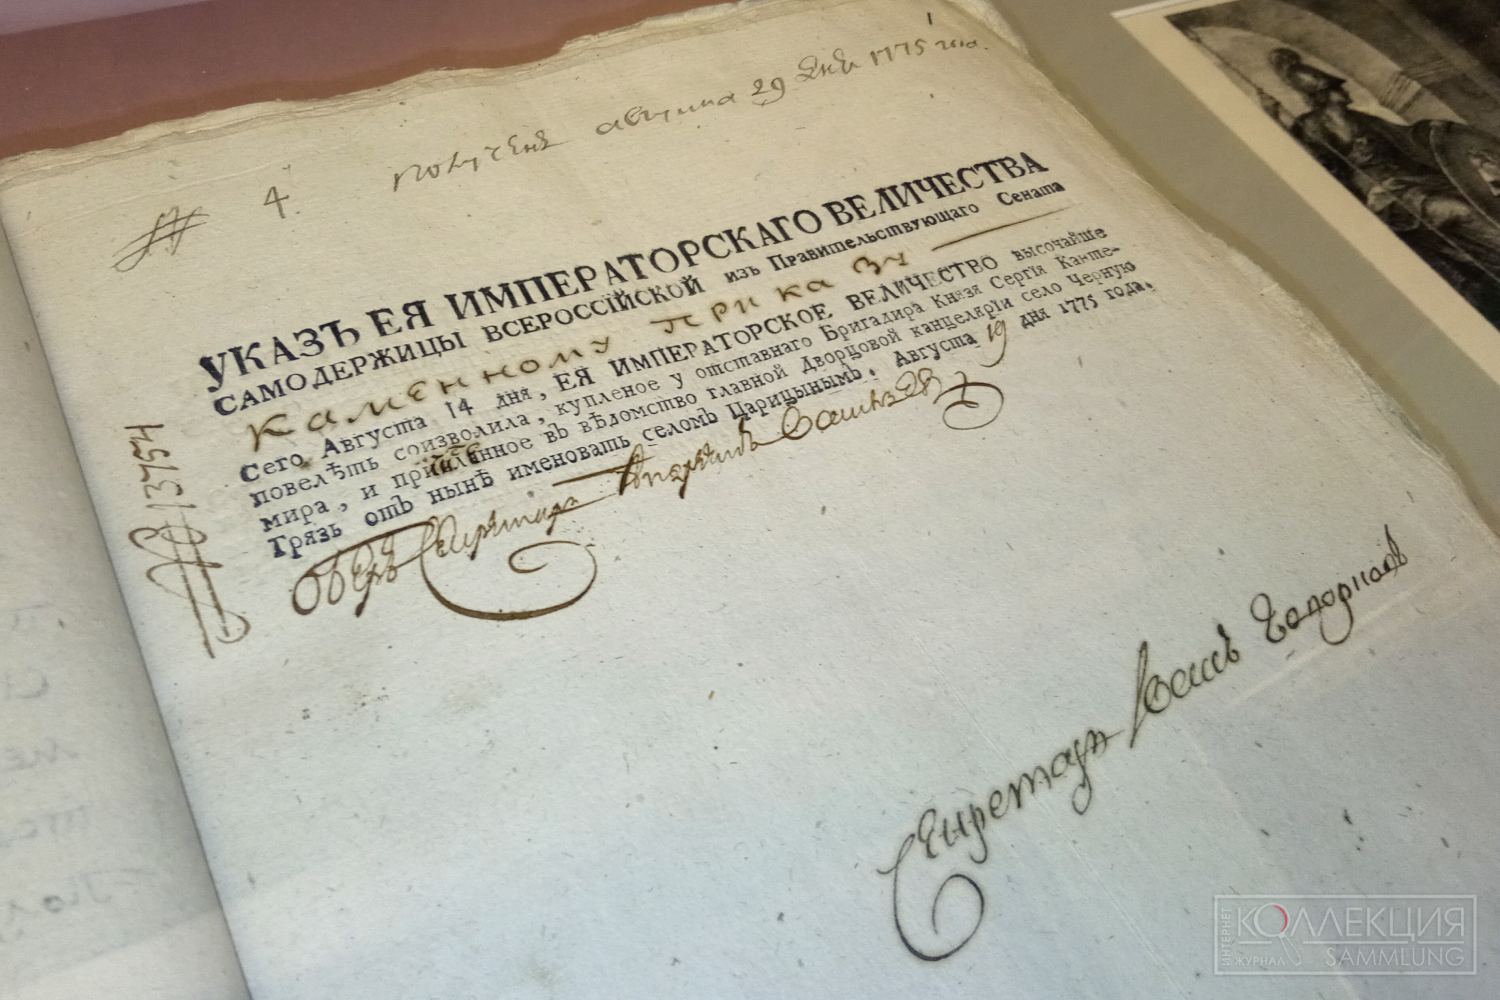 4. Полученъ августа 29 дня 1775 года.
УКАЗЪ ЕЯ ИМПЕРАТОРСКАГО ВЕЛИЧЕСТВА
САМОДЕРЖИЦЫ ВСЕРОССІЙСКОЙ изъ Правительствующаго Сената
Каменному приказу
Сего Августа 14 дня, ЕЯ ИМПЕРАТОРСКОЕ ВЕЛИЧЕСТВО высочайше
повелѣть соизволила, купленое у отставнаго Бригадира Князя Сергія Канте-
мира, и причисленное въ вѣдомство главной Дворцовой канцеляріи село Черную
Грязь отъ нынѣ именовать селомъ Царицынымъ. Августа 19 дня 1775 года.
Оберъ Секретарь
13754
Секретарь
ИНТЕРНЕТ ЖУРНАЛ
КОЛЛЕКЦИЯ
SAMMLUNG